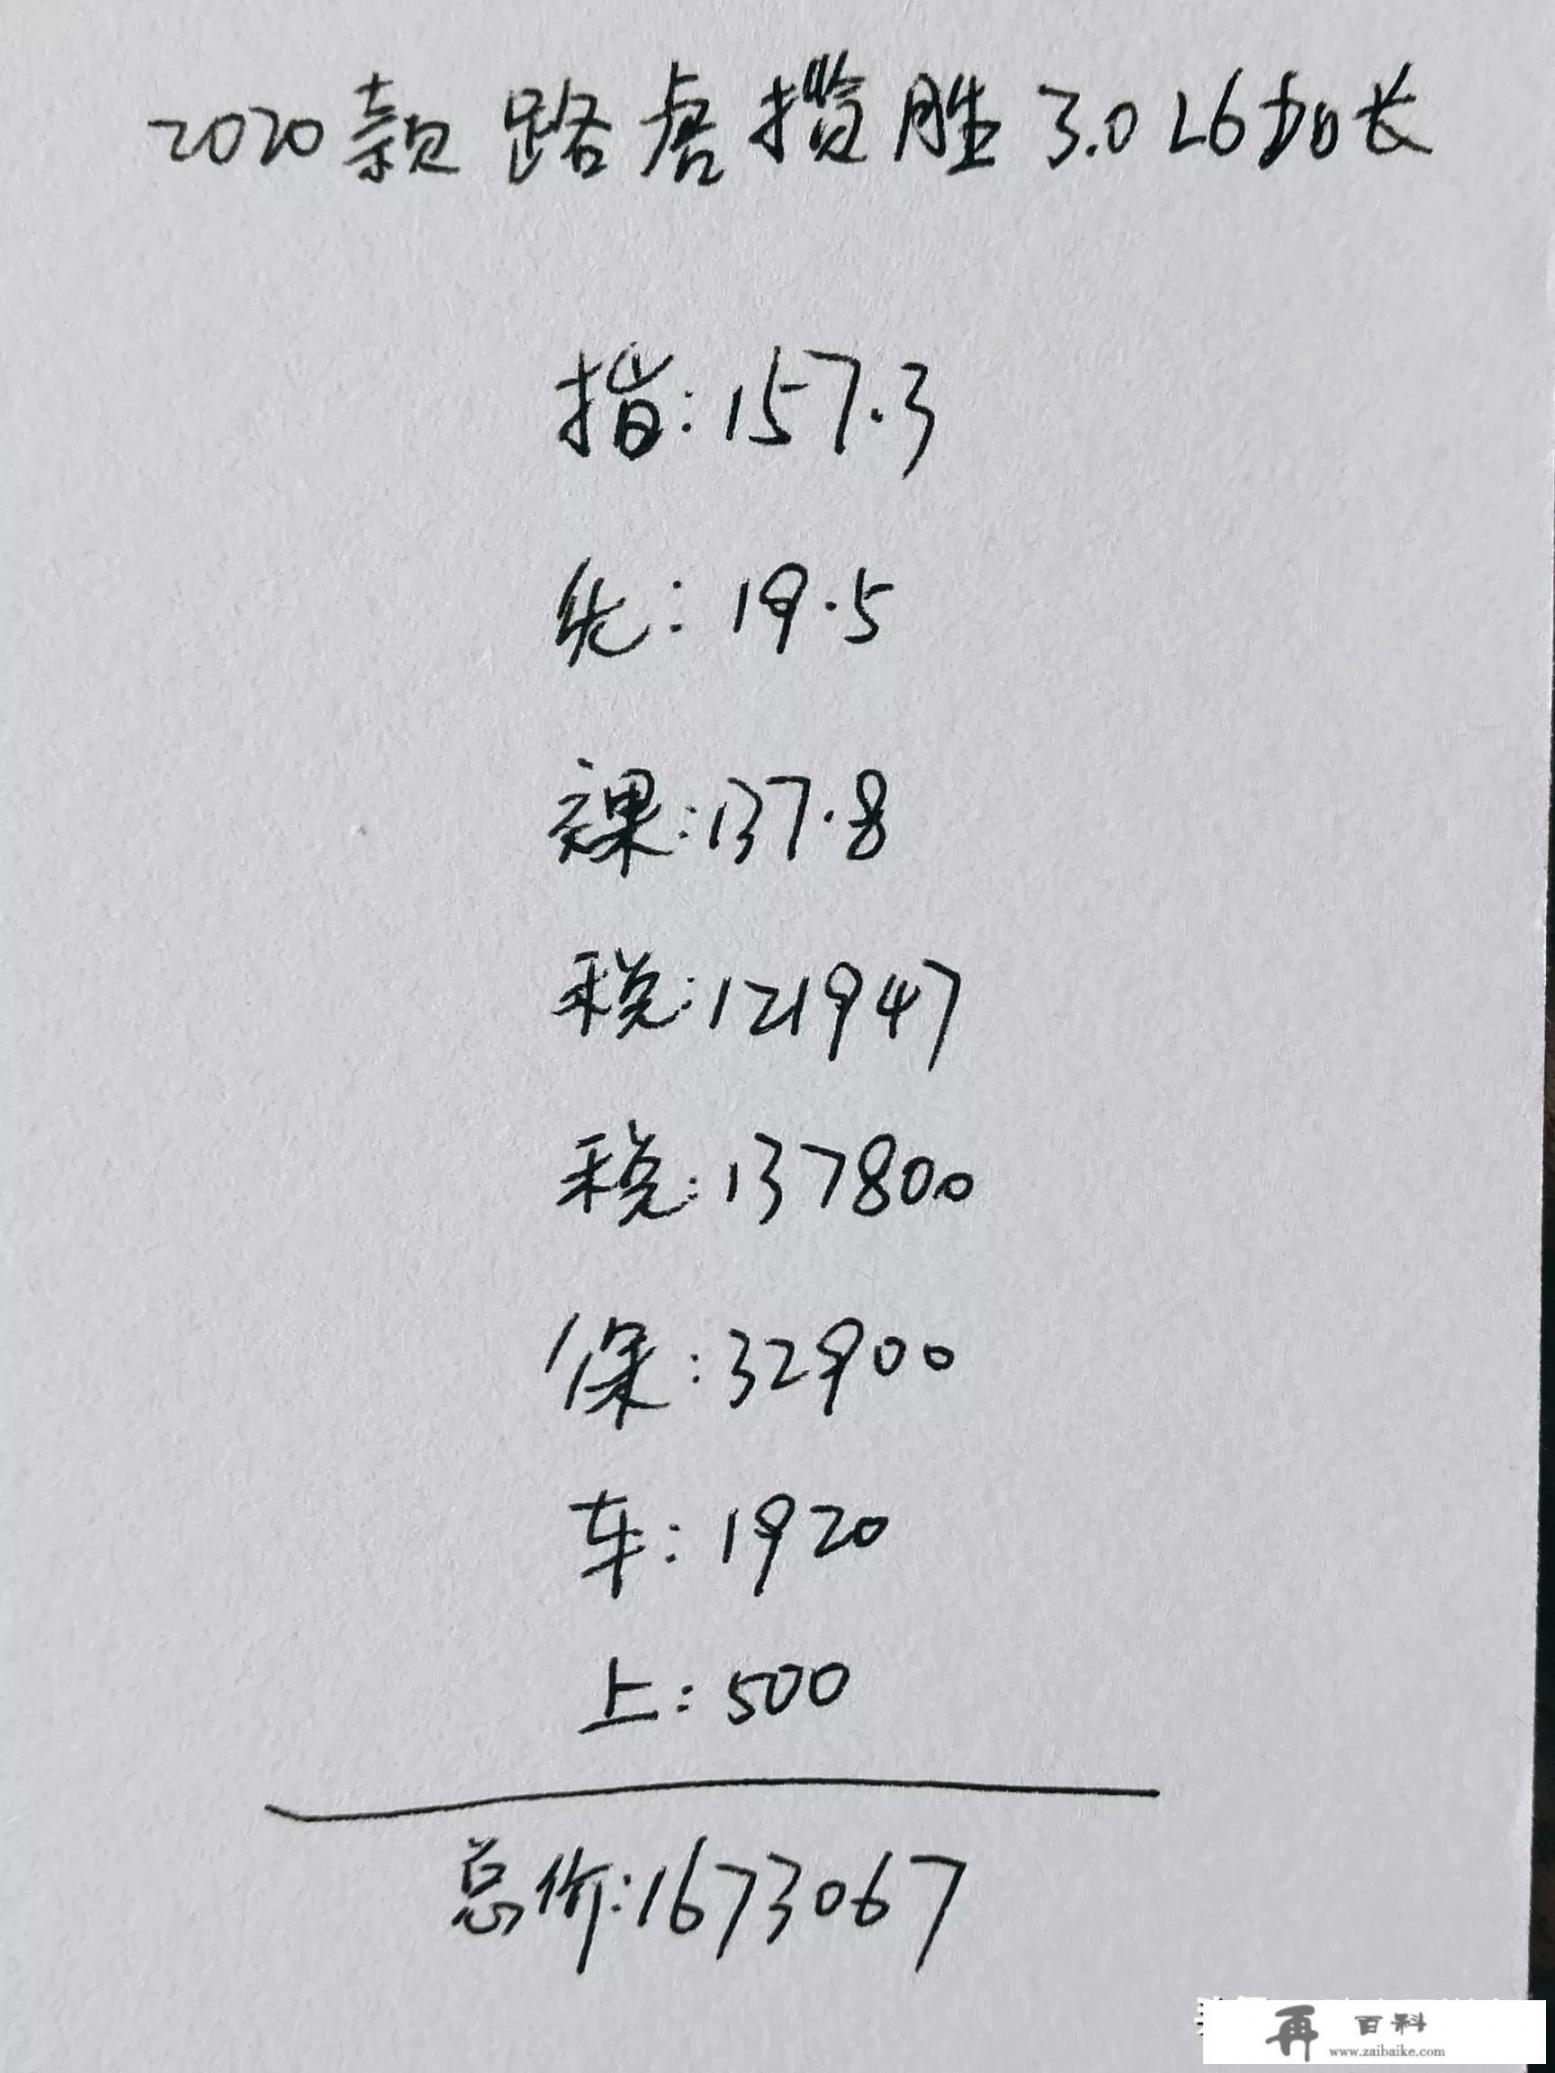 2020款路虎揽胜3.0 L6加长
指:157.3
优:19.5
裸:137.8
税:121947
税:137800
保:32900
车:1920
上:500
总价:1673067
再 百科
www.zaibaike.com